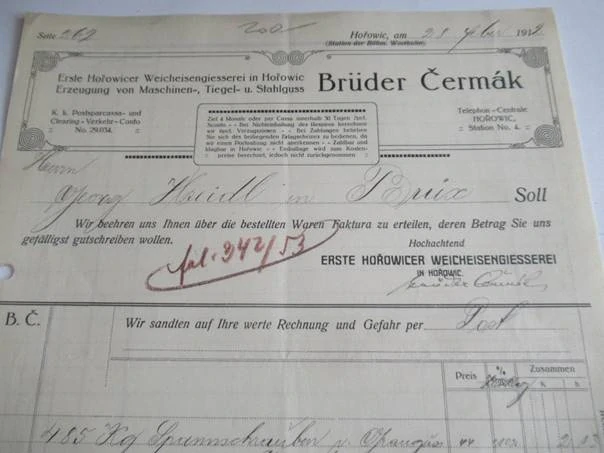 Seite 262
200
Hořowic, am 28. 1912
(Station der Böhm. Westbahn)
Erste Hořowicer Weicheisengiesserei in Hořowic
Erzeugung von Maschinen-, Tiegel- u. Stahlguss
Brüder Čermák
K. k. Postsparcassa- und
Clearing-Verkehr-Conto
No. 29.034.
Ziel 4 Monate oder per Cassa innerhalb 30 Tagen
Sconto - Bei Nichteinhaltung des Respiros berechnen
wir Verzugszinsen - Bei Zahlungen belieben
Sie sich des beiliegenden Erlagscheines zu bedienen, da
wir einen Portoabzug nicht anerkennen - Zahlbar und
klagbar in Hořowic - Emballage wird zum Kosten-
preise berechnet, jedoch nicht zurückgenommen
Telephon-Centrale
HOŘOWIC,
Station No. 4.
Herrn
Georg in Brüx Soll
Wir beehren uns Ihnen über die bestellten Waren Faktura zu erteilen, deren Betrag Sie uns
gefälligst gutschreiben wollen.
fol. 342/53
Hochachtend
ERSTE HOŘOWICER WEICHEISENGIESSEREI
IN HOŘOWIC.
Brüder Čermák
B. Č.
Wir sandten auf Ihre werte Rechnung und Gefahr per Post
Preis % Zusammen
K h
485 Kg